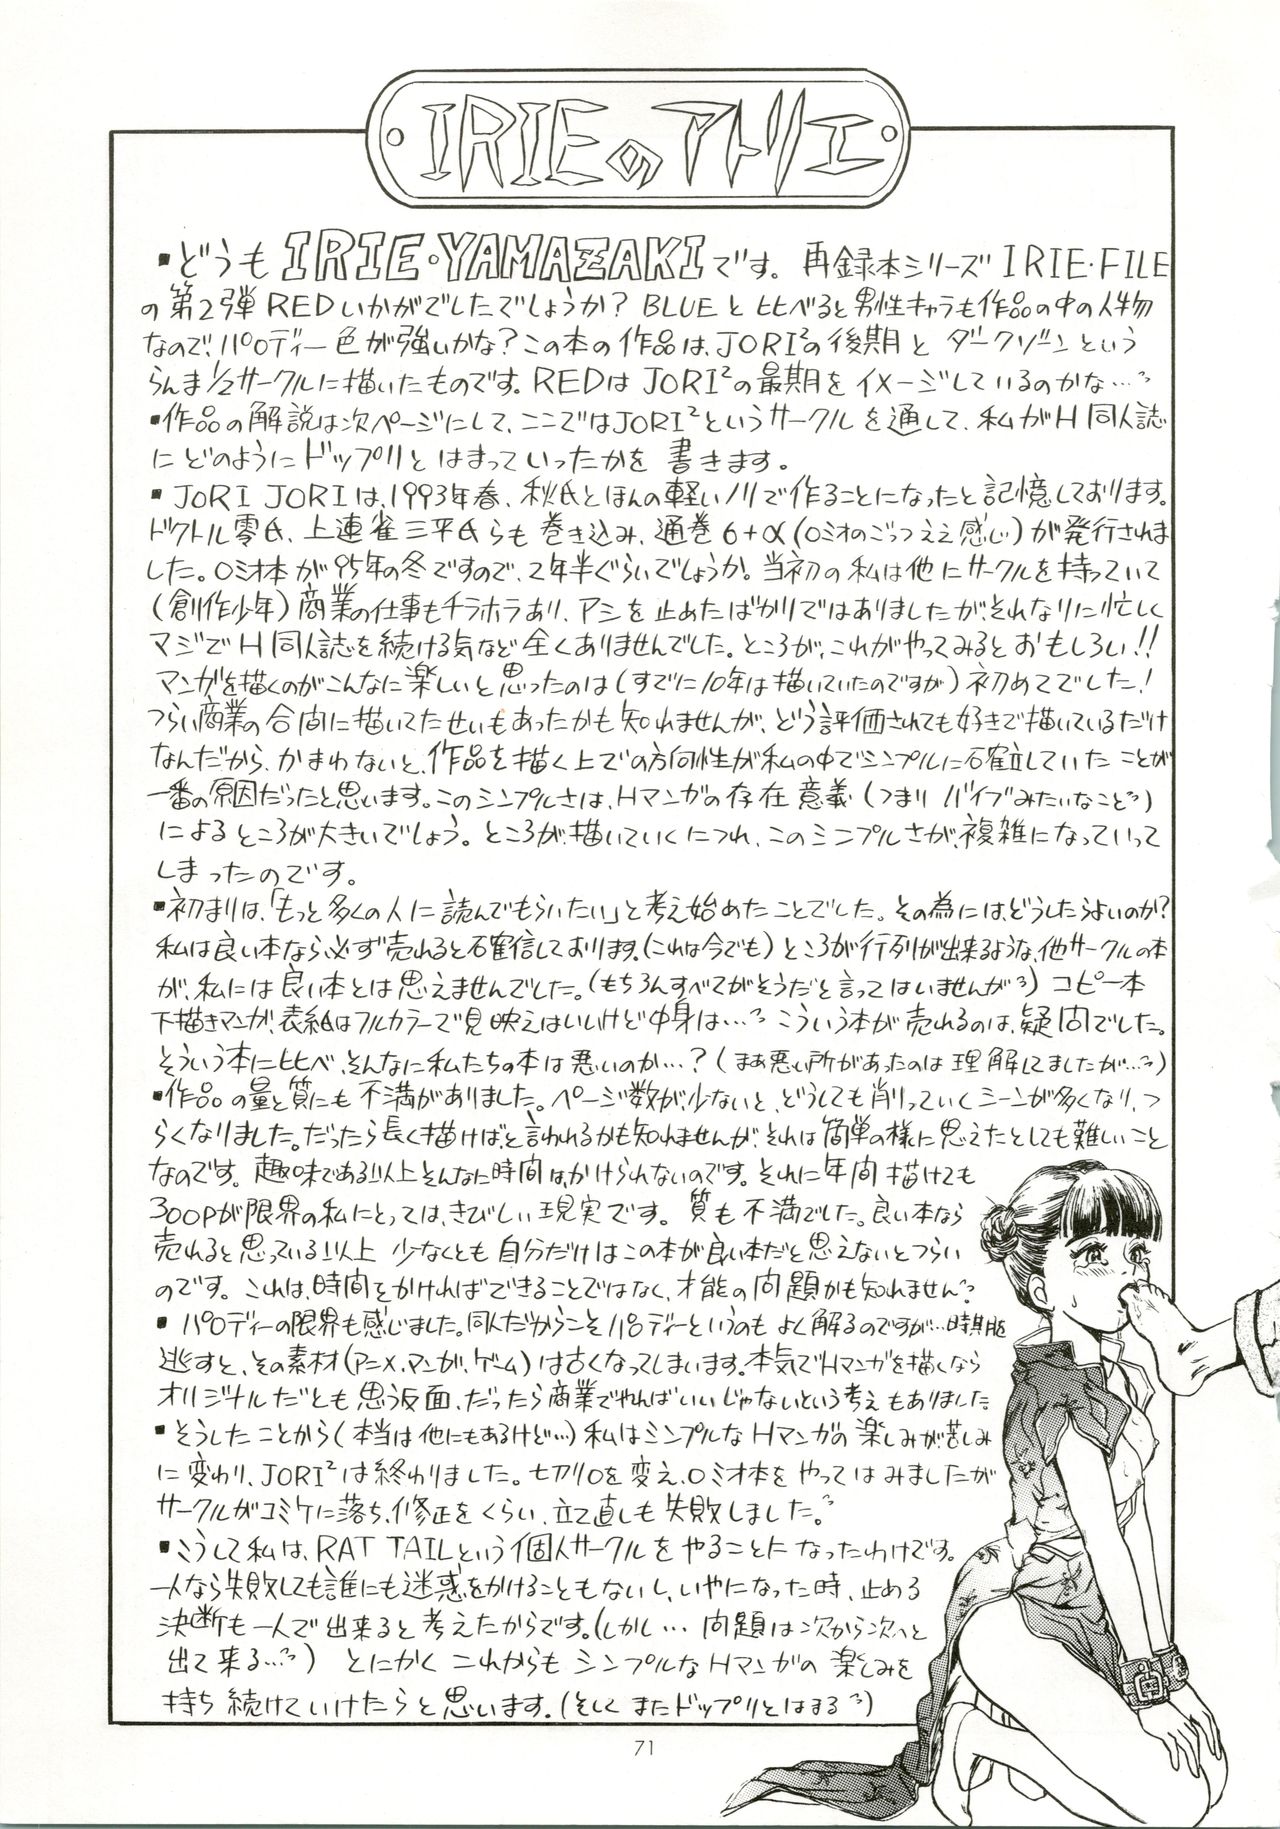 IRIEのアトリエ
▪どうもIRIE・YAMAZAKIです。再録本シリーズIRIE・FILE
の第2弾REDいかがでしたでしょうか？BLUEと比べると男性キャラも作品の中の人物
なので、パロディー色が強いかな？この本の作品は、JORI²の後期とダークゾーンという
らんま1/2サークルに描いたものです。REDはJORI²の最期をイメージしているのかな…
▪作品の解説は次ページにして、ここではJORI²というサークルを通して、私がH同人誌
にどのようにドップリとはまっていったかを書きます。
▪JORI JORIは、1993年春、秋氏とほんの軽いノリで作ることになったと記憶しております。
ドクトル零氏、上連雀三平氏らも巻き込み、通巻6+α(ロミオのごっつええ感じ)が発行されま
した。ロミオ本が95年の冬ですので、2年半ぐらいでしょうか。当初の私は他にサークルを持っていて
(創作少年)商業の仕事もチラホラあり、アシを止めたばかりではありましたが、それなりに忙しく
マジでH同人誌を続ける気など全くありませんでした。ところが、これがやってみるとおもしろい!!
マンガを描くのがこんなに楽しいと思ったのは(すでに10年は描いていたのですが)初めてでした！
つらい商業の合間に描いてたせいもあったかも知れませんが、どう評価されても好きで描いているだけ
なんだから、かまわないと、作品を描く上での方向性が私の中でシンプルに確立していたことが
一番の原因だったと思います。このシンプルさは、Hマンガの存在意義(つまりバイブみたいなこと)
によるところが大きいでしょう。ところが、描いていくにつれ、このシンプルさが、複雑になっていって
しまったのです。
▪初まりは、「もっと多くの人に読んでもらいたい」と考え始めたことでした。その為には、どうしたらよいのか？
私は良い本なら必ず売れると確信しております。(これは今でも)ところが行列が出来るような、他サークルの本
が、私には良い本とは思えませんでした。(もちろんすべてがそうだと言ってはいませんが)コピー本
下描きマンガ、表紙はフルカラーで見映えはいいけど中身は…こういう本が売れるのは、疑問でした。
そういう本に比べ、そんなに私たちの本は悪いのか…？(まあ悪い所があったのは理解してましたが…)
▪作品の量と質にも不満がありました。ページ数が、少ないと、どうしても削っていくシーンが多くなり、つ
らくなりました。だったら長く描けば、と言われるかも知れませんが、それは簡単の様に思えたとしても難しいこと
なのです。趣味である以上そんなに時間は、かけられないのです。それに年間描けても
300Pが限界の私にとっては、きびしい現実です。質も不満でした。良い本なら
売れると思っている以上少なくとも自分だけはこの本が良い本だと思えないとつらい
のです。これは、時間をかければできることではなく、才能の問題かも知れません
▪パロディーの限界も感じました。同人だからこそパロディーというのもよく解るのですが…時期を
逃すと、その素材(アニメ、マンガ、ゲーム)は古くなってしまいます。本気でHマンガを描くなら
オリジナルだとも思う反面、だったら商業でやればいいじゃないという考えもありました
▪そうしたことから(本当は他にもあるけど…)私はシンプルなHマンガの楽しみが、苦しみ
に変わり、JORI²は終わりました。切り口を変え、ロミオ本をやってはみましたが
サークルがコミケに落ち、修正をくらい、立て直しも失敗しました。
▪こうして私は、RAT TAILという個人サークルをやることになったわけです。
一人なら失敗しても誰にも迷惑をかけることもないし、いやになった時、止める
決断も一人で出来ると考えたからです。(しかし…問題は次から次へと
出て来る…)とにかくこれからもシンプルなHマンガの楽しみを
持ち続けていけたらと思います。(そしてまたドップリとはまる)
71